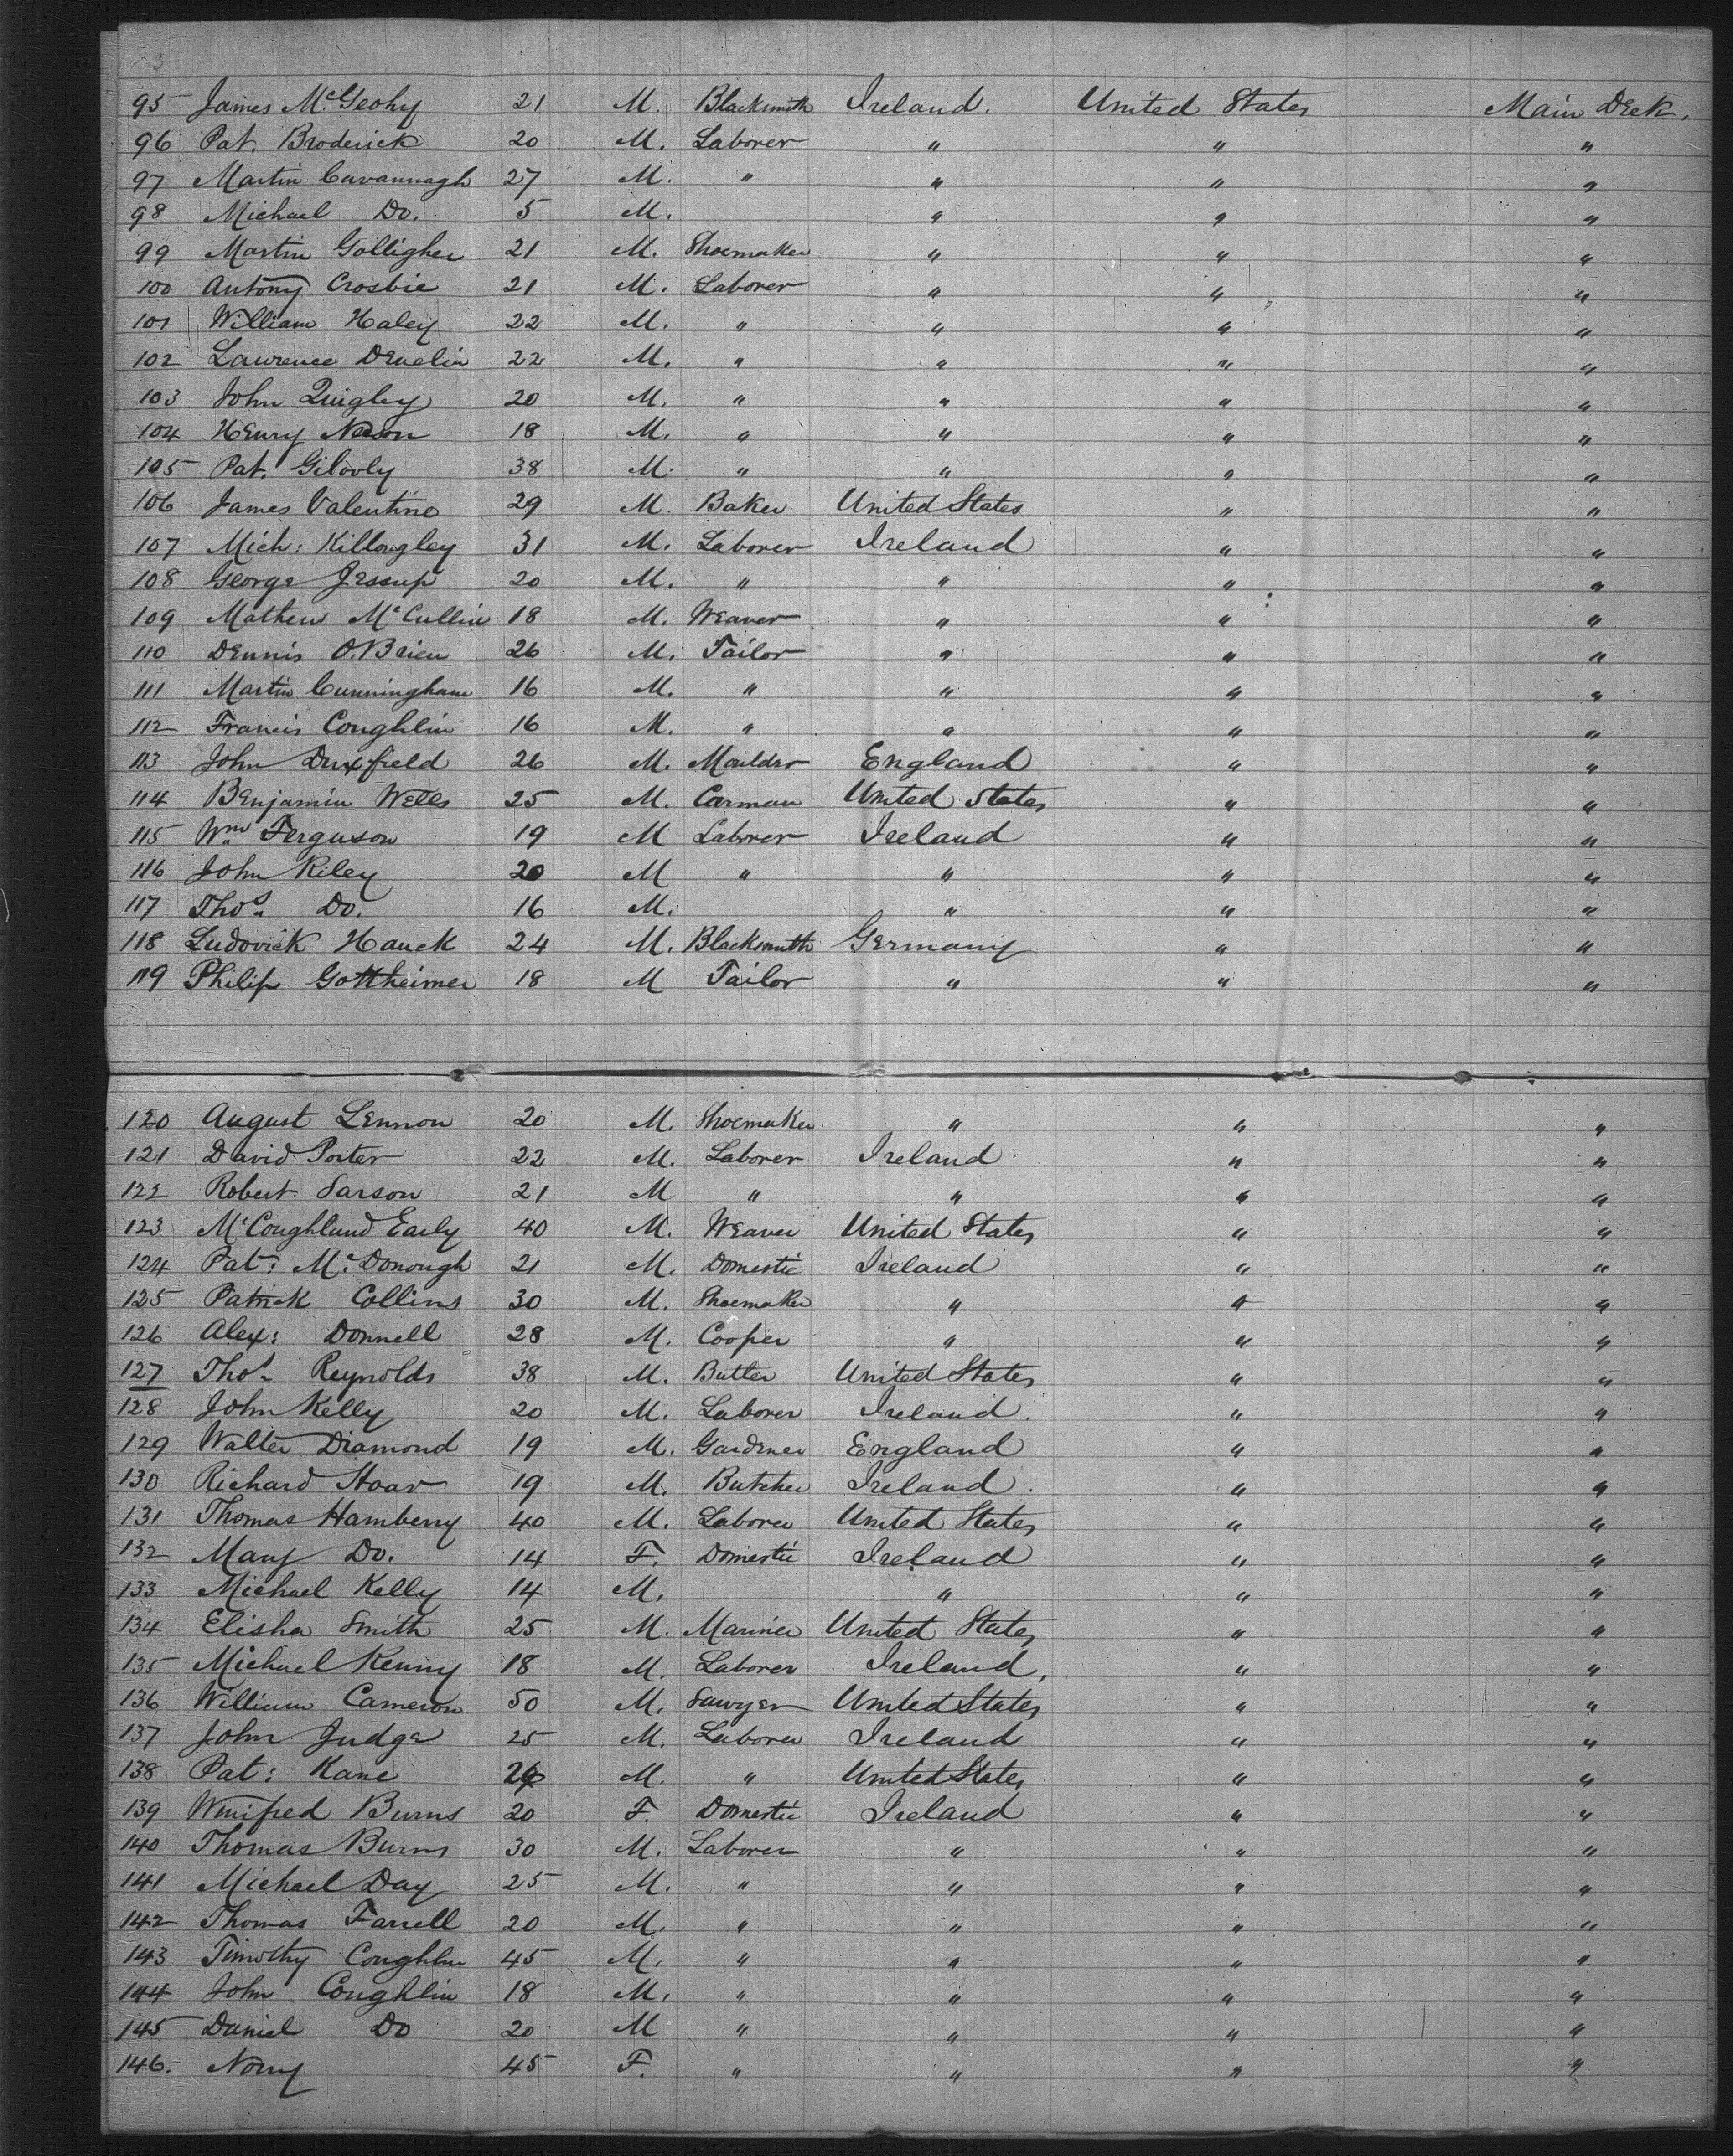 95 James McGeohy 21 M. Blacksmith Ireland. United States Main Deck,
96 Pat. Broderick 20 M. Laborer " " "
97 Martin Cavannagh 27 M. " " " "
98 Michael Do. 5 M. " " "
99 Martin Golligher 21 M. Shoemaker " " "
100 Antony Crosbie 21 M. Laborer " " "
101 William Haley 22 M. " " " "
102 Lawrence Develin 22 M. " " " "
103 John Quigley 20 M. " " " "
104 Henry 18 M. " " " "
105 Pat. Gilooly 38 M. " " " "
106 James Valentine 29 M. Baker United States " "
107 Mich: Killongley 31 M. Laborer Ireland " "
108 George Jessup 20 M. " " " "
109 Mathew McCullin 18 M. Weaver " " "
110 Dennis O.Brien 26 M. Tailor " " "
111 Martin Cunningham 16 M. " " " "
112 Francis Coughlin 16 M. " " " "
113 John Duxfield 26 M. Moulder England " "
114 Benjamin Wells 25 M. Carman United States " "
115 Wm Ferguson 19 M Laborer Ireland " "
116 John Riley 20 M " " " "
117 Thos. Do. 16 M. " " "
118 Ludovick Hauck 24 M. Blacksmith Germany " "
119 Philip Gottheimer 18 M Tailor " " "
120 August Lennon 20 M. Shoemaker " " "
121 David Porter 22 M. Laborer Ireland " "
122 Robert Sarson 21 M " " " "
123 McCoughland Early 40 M. Weaver United States " "
124 Pat: McDonough 21 M. Domestic Ireland " "
125 Patrick Collins 30 M. Shoemaker " " "
126 Alex: Donnell 28 M. Cooper " " "
127 Thos. Reynolds 38 M. Butler United States " "
128 John Kelly 20 M. Laborer Ireland. " "
129 Walter Diamond 19 M. Gardener England " "
130 Richard Hoar 19 M. Butcher Ireland. " "
131 Thomas Hamberry 40 M. Laborer United States " "
132 Mary Do. 14 F. Domestic Ireland " "
133 Michael Kelly 14 M. " " "
134 Elisha Smith 25 M. Mariner United States " "
135 Michael Kenny 18 M. Laborer Ireland, " "
136 William Cameron 50 M. Sawyer United States " "
137 John Judge 25 M. Laborer Ireland " "
138 Pat: Kane M. " United States " "
139 Winifred Burns 20 F. Domestic Ireland " "
140 Thomas Burns 30 M. Laborer " " "
141 Michael Day 25 M. " " " "
142 Thomas Farrell 20 M. " " " "
143 Timothy Coughlin 45 M. " " " "
144 John Coughlin 18 M. " " " "
145 Daniel Do 20 M " " " "
146. Norry 45 F. " " " "